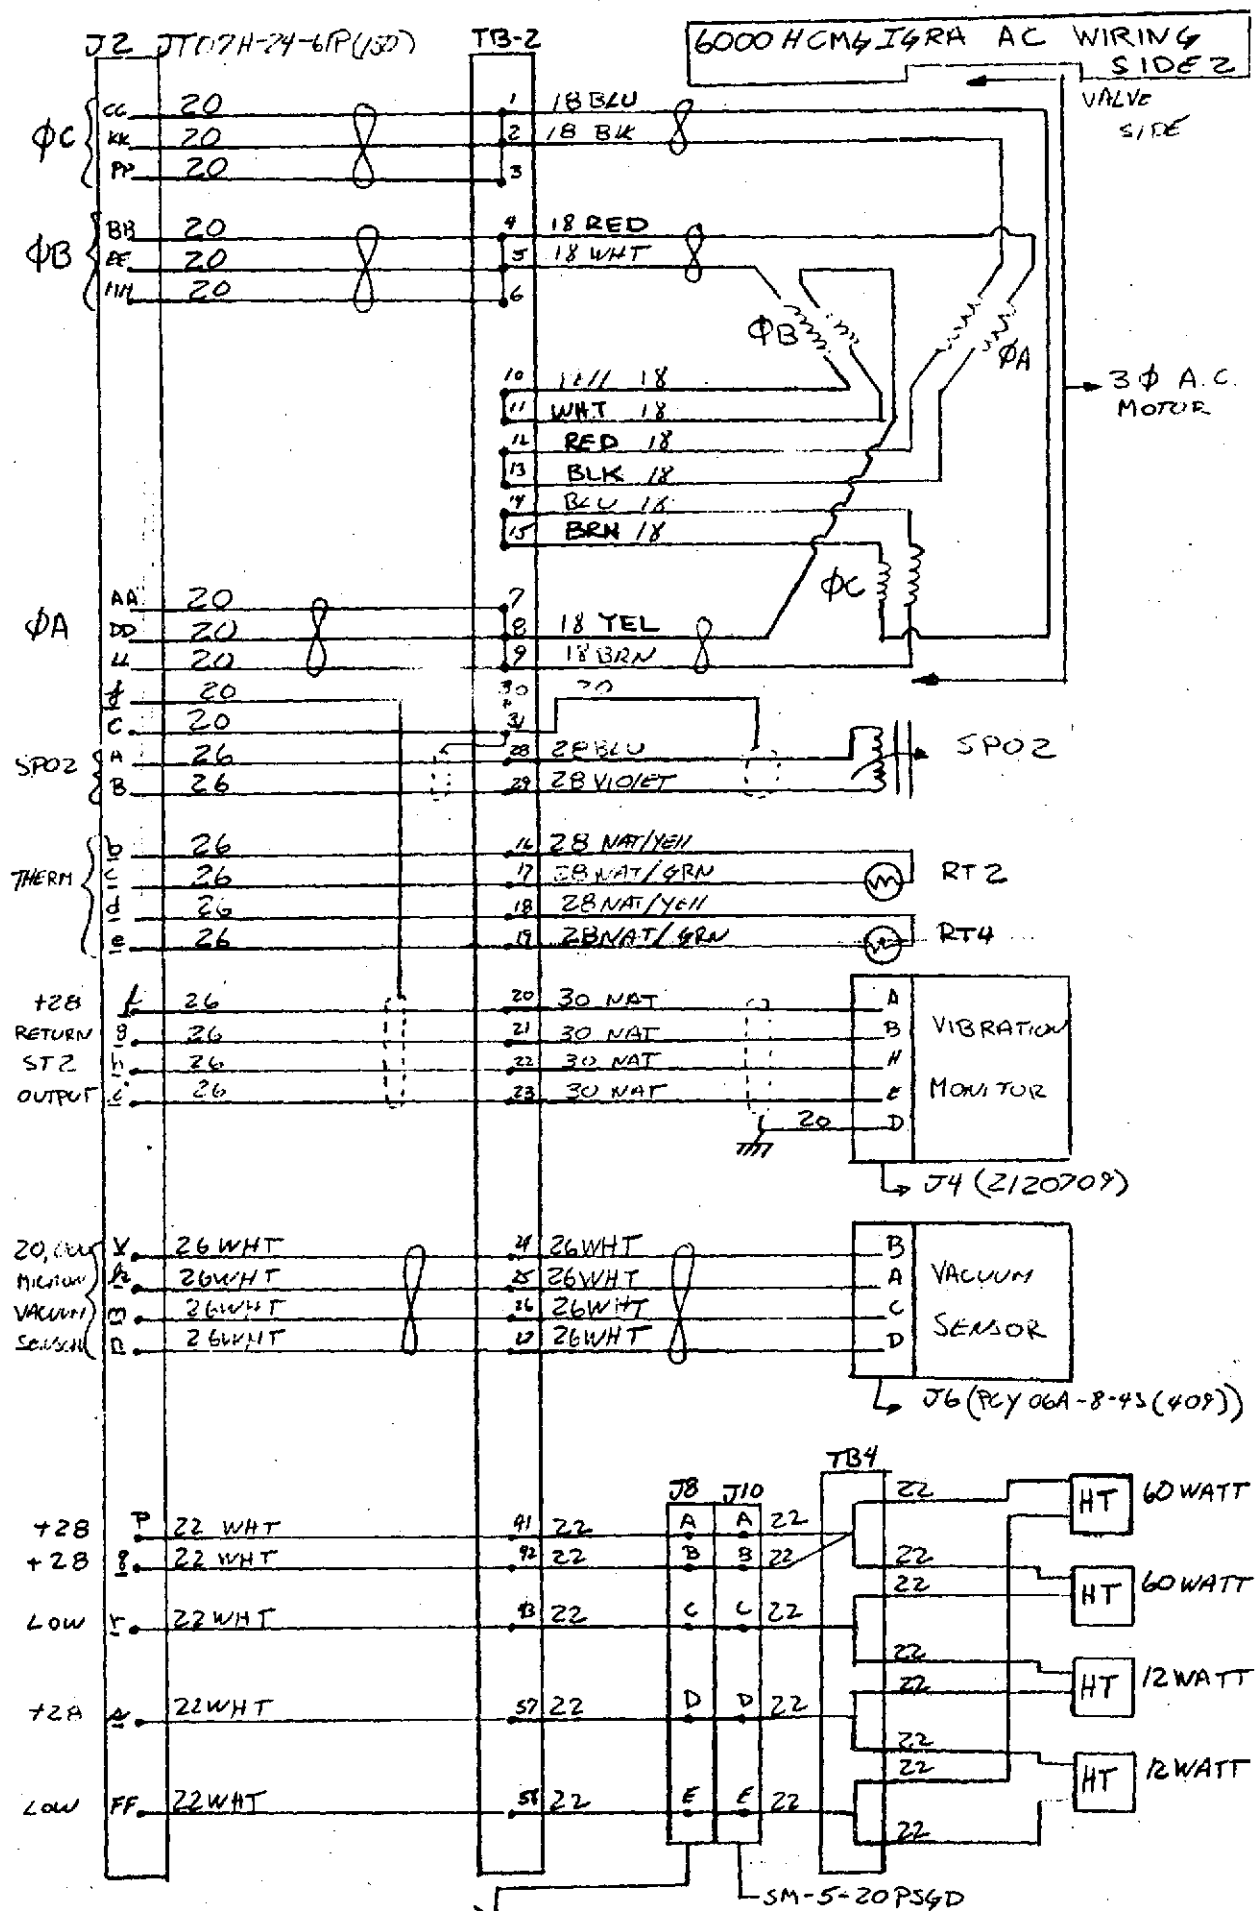 J2 JT07H-24-61P(150) TB-2
6000 HCMG IGRA AC WIRING
SIDE 2
VALVE
SIDE
ΦC
CC 20 1 18 BLU
KK 20 2 18 BK
PP 20 3
ΦB
BB 20 4 18 RED
EE 20 5 18 WHT
HH 20 6
ΦB
ΦA
3Φ A.C.
MOTOR
10 YEll 18
11 WHT 18
12 RED 18
13 BLK 18
14 BLU 18
15 BRN 18
ΦC
ΦA
AA 20 7
DD 20 8 18 YEL
LL 20 9 18 BRN
20 30 20
C 20 31
SPO2
A 26 28 28 BLU
B 26 29 28 VIOlET
SPO2
THERM
b 26 16 28 NAT/YEll
c 26 17 28 NAT/GRN
RT2
d 26 18 28 NAT/YEll
e 26 19 28 NAT/GRN
RT4
+28 f 26 20 30 NAT A
RETURN g 26 21 30 NAT B
ST2 h 26 22 30 NAT H
OUTPUT i 26 23 30 NAT E
20 D
VIBRATION
MONITOR
J4 (2120709)
MICRON
VACUUM
SENSOR
26 WHT 24 26 WHT B
k 26 WHT 25 26 WHT A
m 26 WHT 26 26 WHT C
n 26 WHT 27 26 WHT D
VACUUM
SENSOR
J6 (PCY 06A-8-4S (409))
J8 J10 TB4
+28 P 22 WHT 41 22 A A 22
+28 q 22 WHT 42 22 B B 22
LOW r 22 WHT 43 22 C C 22
+28 s 22 WHT 57 22 D D 22
LOW FF 22 WHT 58 22 E E 22
22 HT 60 WATT
22
22 HT 60 WATT
22
22 HT 12 WATT
22
22 HT 12 WATT
22
SM-5-20PSGD